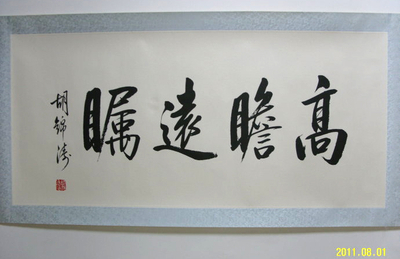 高瞻遠瞩
胡锦涛
2011.08.01